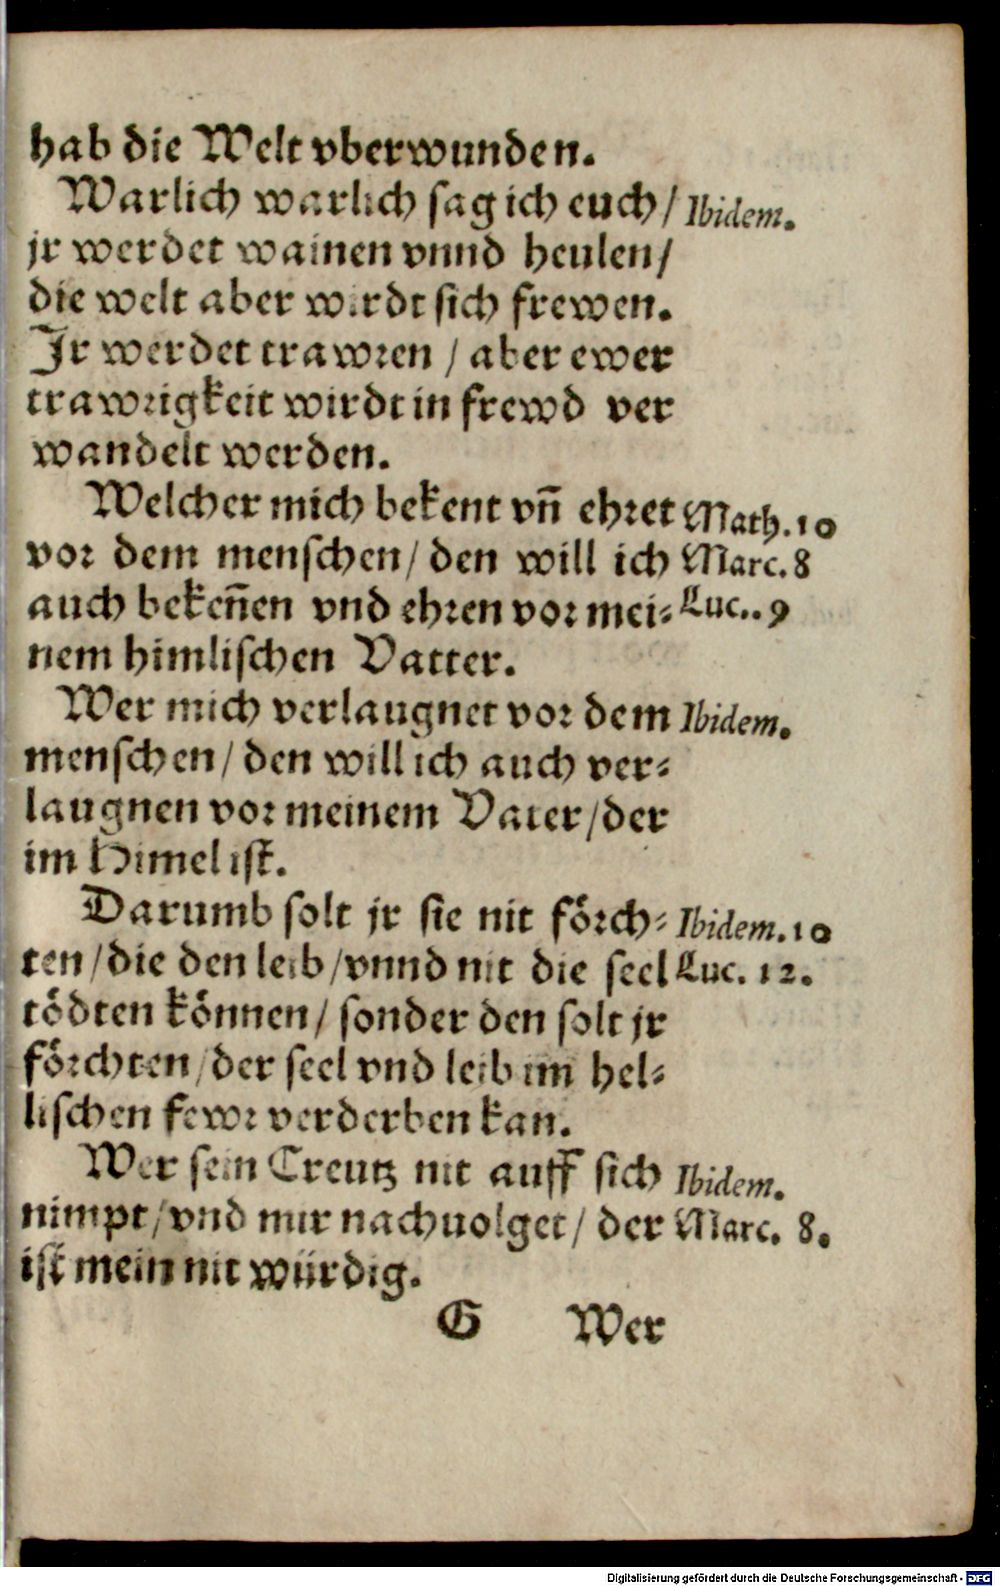 hab die Welt vberwunden.
Warlich warlich sag ich euch / Ibidem.
jr werdet wainen vnnd heulen /
die welt aber wirdt sich frewen.
Jr werdet trawren / aber ewer
trawrigkeit wirdt in frewd ver
wandelt werden.
Welcher mich bekent vn̄ ehret Math. 10
vor dem menschen / den will ich Marc. 8
auch beken̄en vnd ehren vor mei⸗ Luc.. 9
nem himlischen Vatter.
Wer mich verlaugnet vor dem Ibidem.
menschen / den will ich auch ver⸗
laugnen vor meinem Vater / der
im Himel ist.
Darumb solt jr sie nit förch⸗ Ibidem. 10
ten / die den leib / vnnd nit die seel Luc. 12.
tödten können / sonder den solt jr
förchten / der seel vnd leib im hel⸗
lischen fewr verderben kan.
Wer sein Creutz nit auff sich Ibidem.
nimpt / vnd mir nachuolget / der Marc. 8.
ist mein nit würdig.
G Wer
Digitalisierung gefördert durch die Deutsche Forschungsgemeinschaft - DFG